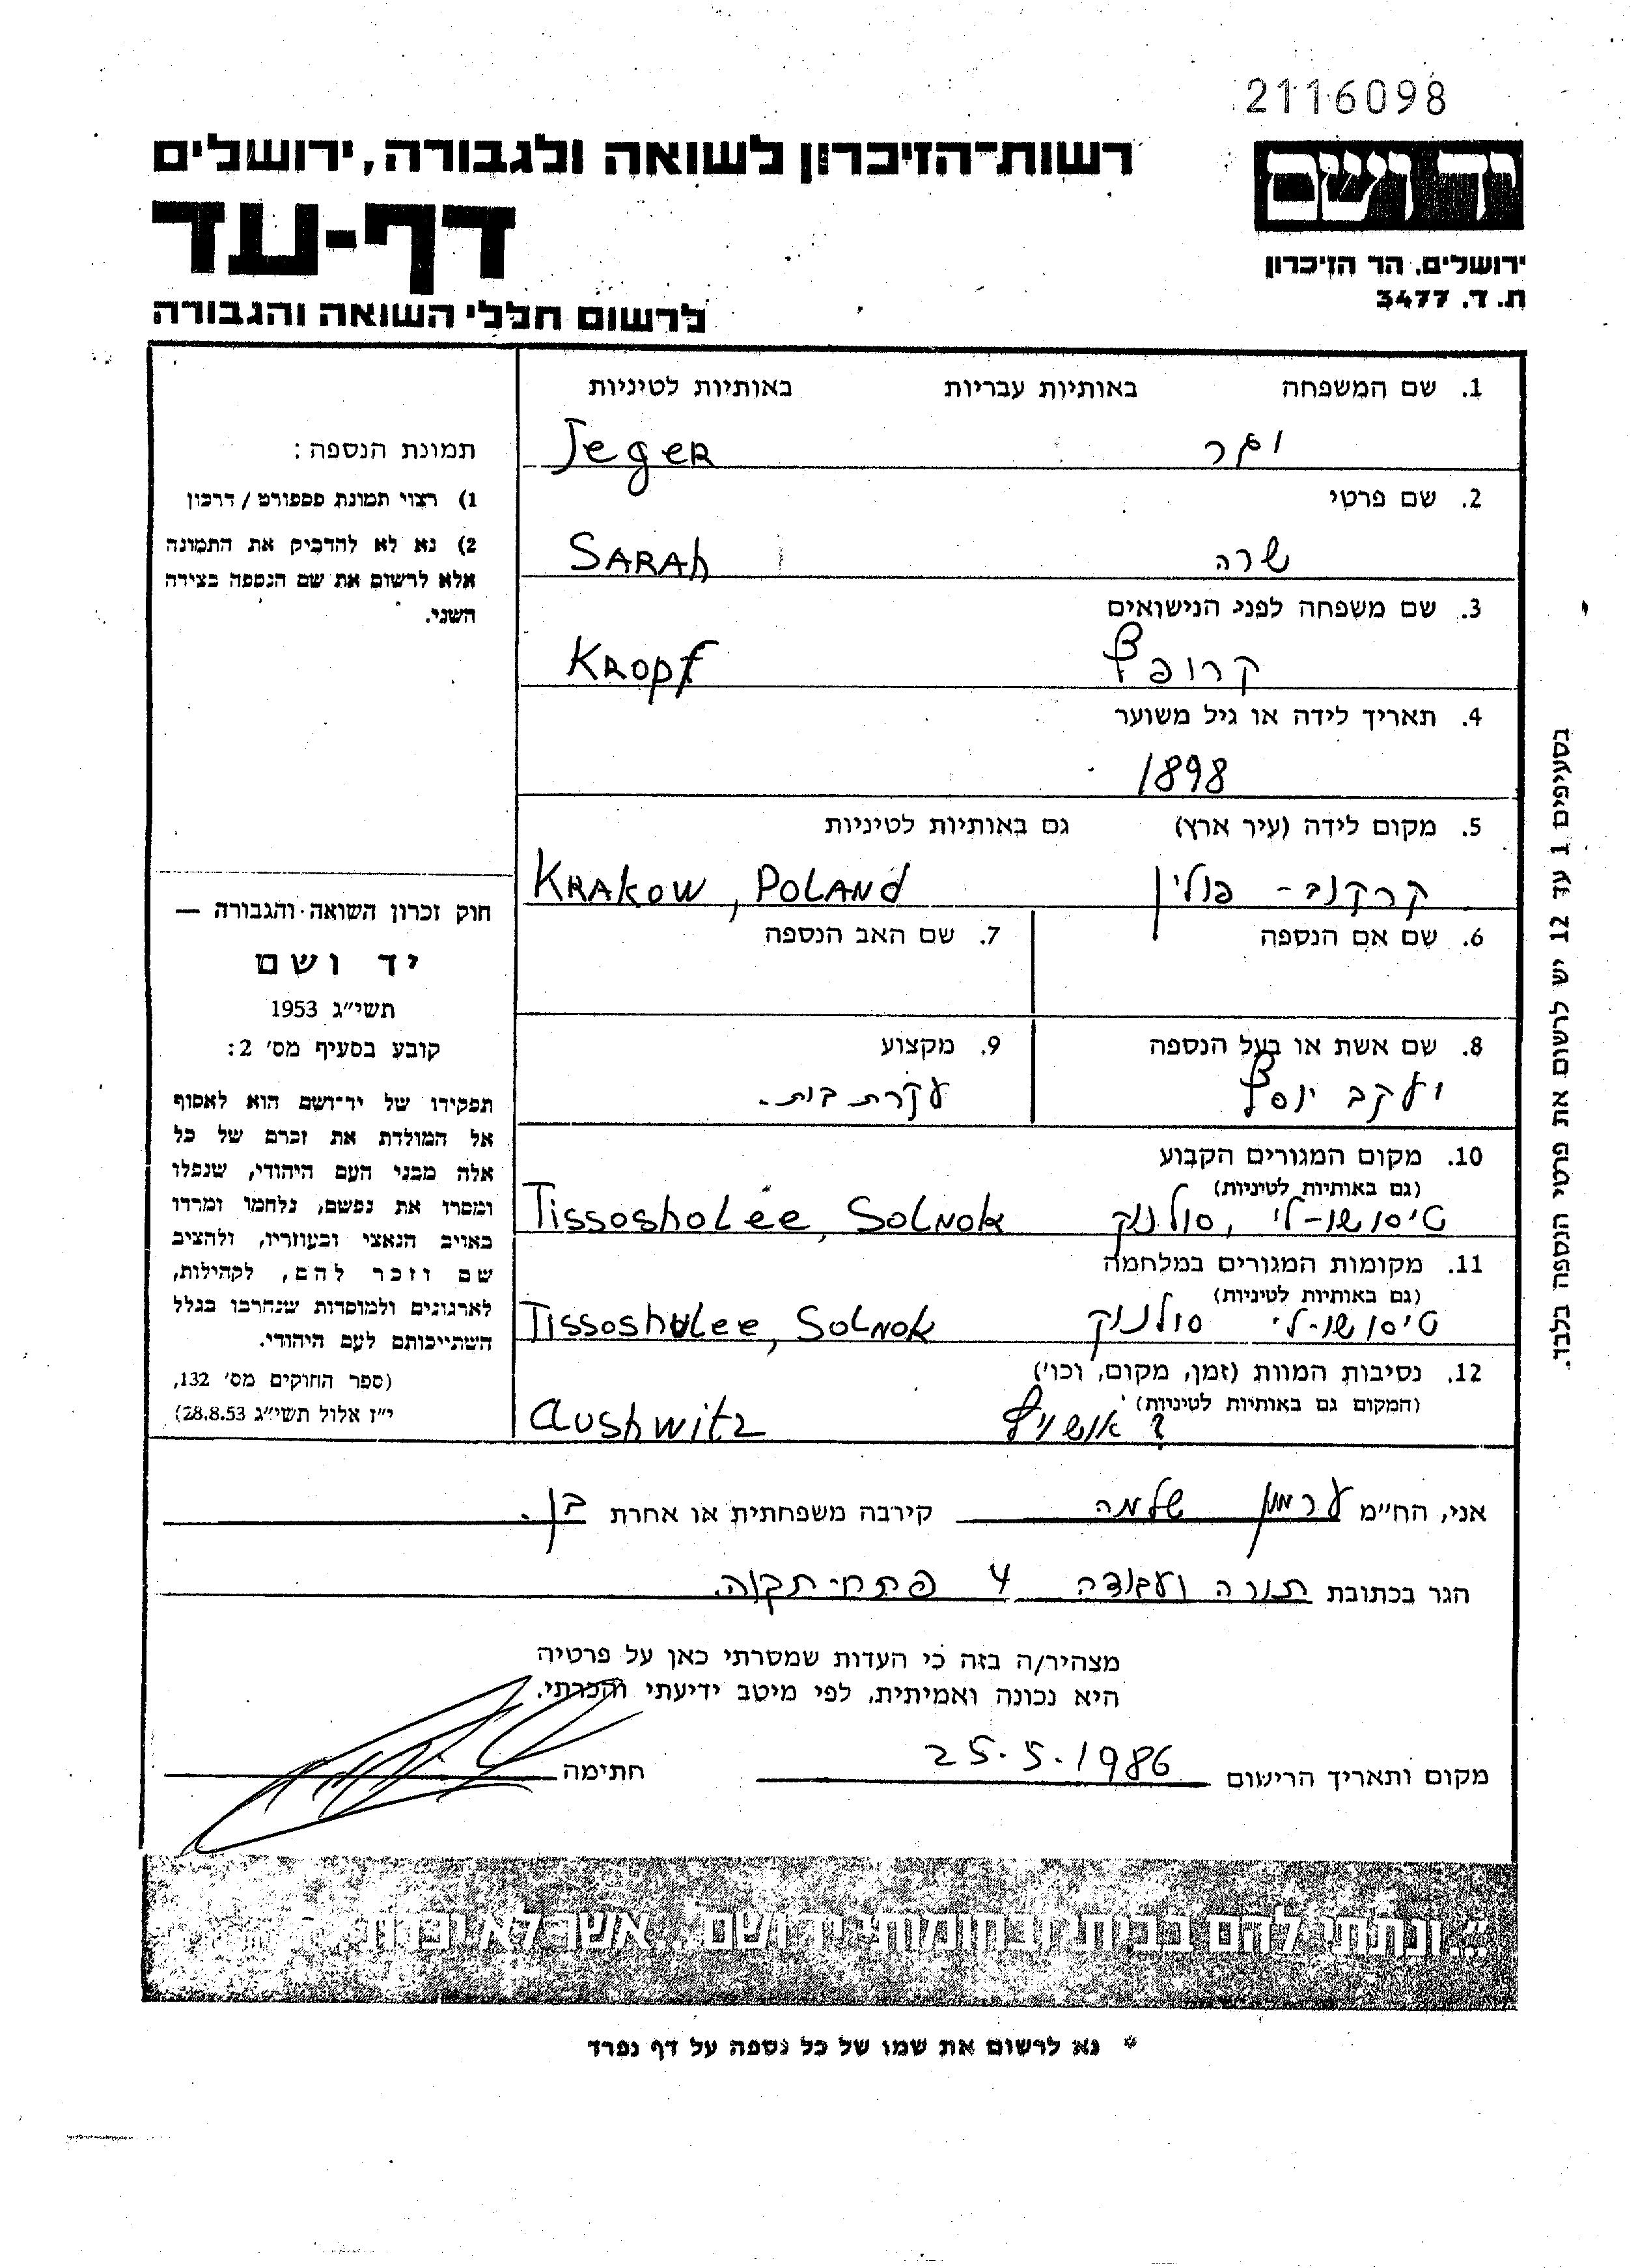 2116098
רשות-הזיכרון לשואה ולגבורה, ירושלים
יד ושם
דף-עד
ירושלים, הר הזיכרון
ת. ד. 3477
לרשום חללי השואה והגבורה
1. שם המשפחה באותיות עבריות באותיות לטיניות
יגר Jeger
2. שם פרטי
שרה SARAh
3. שם משפחה לפני הנישואים
קרופף Kropf
4. תאריך לידה או גיל משוער
1898
5. מקום לידה (עיר ארץ) גם באותיות לטיניות
קרקוב - פולין KRAKOW, POLAND
6. שם אם הנספה 7. שם האב הנספה
8. שם אשת או בעל הנספה 9. מקצוע
יעקב יוסף עקרת בית.
10. מקום המגורים הקבוע
(גם באותיות לטיניות)
טיסו שו-לי, סולנוק Tissosholee, Solnok
11. מקומות המגורים במלחמה
(גם באותיות לטיניות)
טיסו שו-לי סולנוק Tissosholee, Solnok
12. נסיבות המוות (זמן, מקום, וכו')
(המקום גם באותיות לטיניות)
אושויץ Aushwitz
תמונת הנספה:
1) רצוי תמונת פספורט / דרכון
2) נא לא להדביק את התמונה
אלא לרשום את שם הנספה בצידה
השני.
חוק זכרון השואה והגבורה —
יד ושם
תשי״ג 1953
קובע בסעיף מס׳ 2:
תפקידו של יד־ושם הוא לאסוף
אל המולדת את זכרם של כל
אלה מבני העם היהודי, שנפלו
ומסרו את נפשם, נלחמו ומרדו
באויב הנאצי ובעוזריו, ולהציב
שם וזכר להם, לקהילות,
לארגונים ולמוסדות שנחרבו בגלל
השתייכותם לעם היהודי.
(ספר החוקים מס׳ 132,
י״ז אלול תשי״ג 28.8.53)
בסעיפים 1 עד 12 יש לרשום את פרטי הנספה בלבד.
אני, הח״מ ערמון שלמה קירבה משפחתית או אחרת בן.
הגר בכתובת תורה ועבודה 4 פתח-תקוה.
מצהיר/ה בזה כי העדות שמסרתי כאן על פרטיה
היא נכונה ואמיתית, לפי מיטב ידיעתי והכרתי.
מקום ותאריך הרישום 25.5.1986 חתימה
״...ונתתי להם בביתי ובחומותי יד ושם... אשר לא יכרת״
* נא לרשום את שמו של כל נספה על דף נפרד